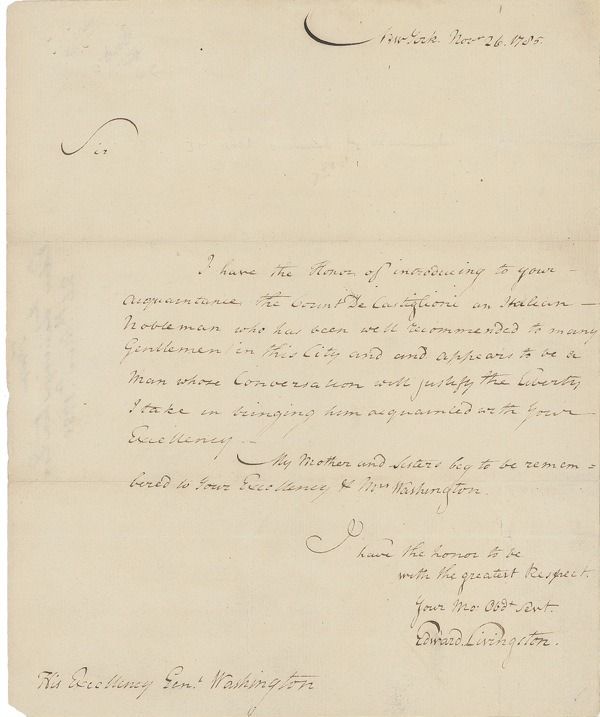 New York Novr 26. 1785.
Sir
I have the Honor of introducing to your
acquaintance the Count De Castiglione an Italian
Nobleman who has been well recommended to many
Gentlemen in this City and and appears to be a
Man whose Conversation will justify the Liberty
I take in bringing him acquainted with Your
Excellency
My Mother and Sisters beg to be remem=
bered to Your Excellency & Mrs Washington.
I have the honor to be
with the greatest Respect.
Your Mo. Obdt Servt.
Edward Livingston.
His Excellency Genl. Washington